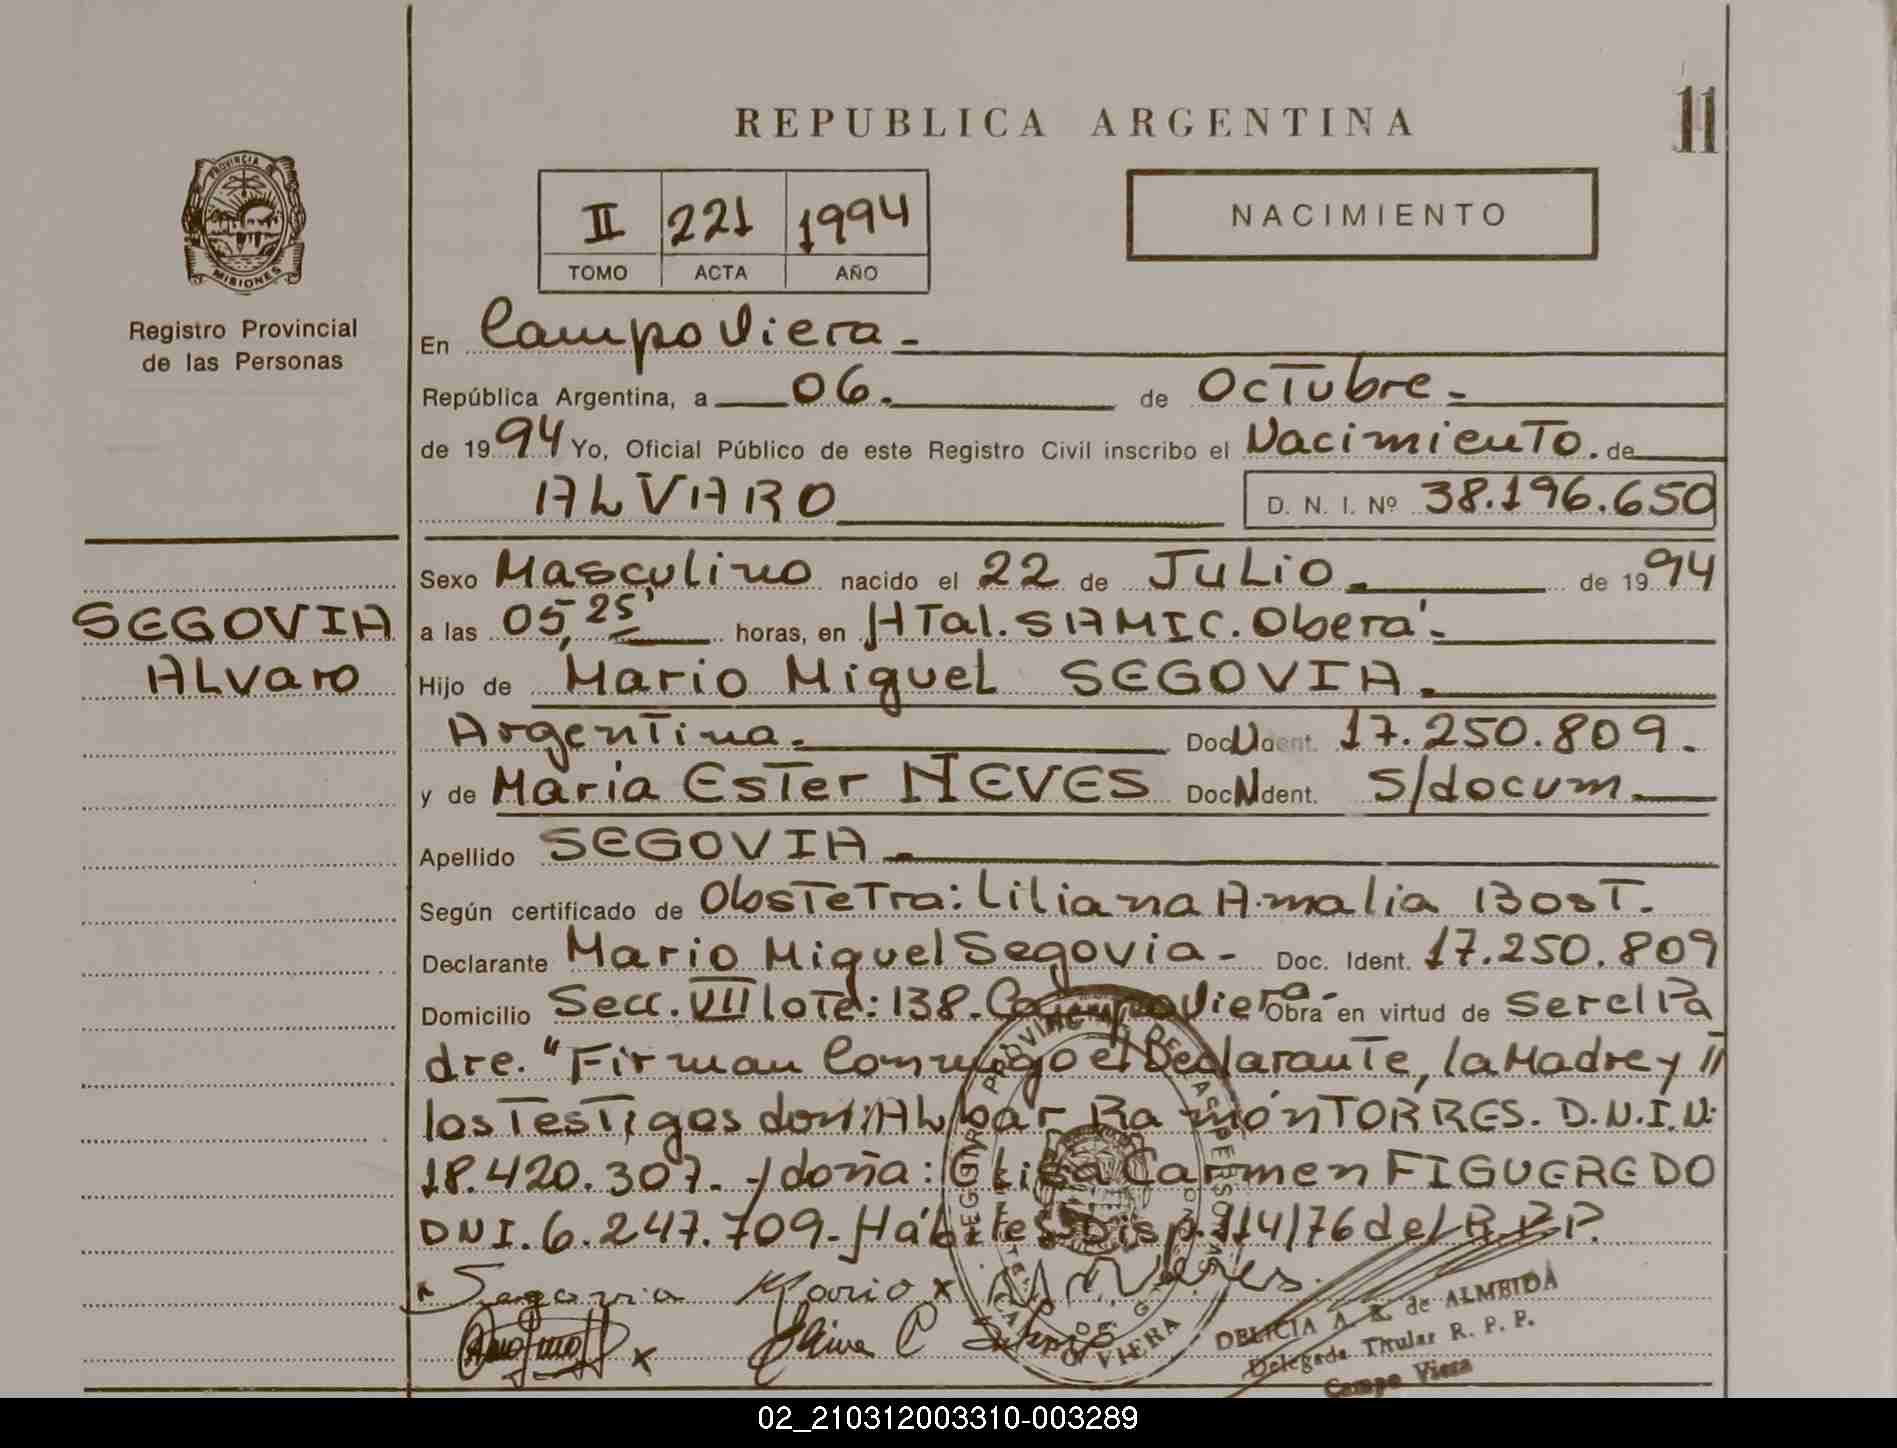 REPUBLICA ARGENTINA
11
PROVINCIA DE
MISIONES
Registro Provincial
de las Personas
II 221 1994
TOMO ACTA AÑO
NACIMIENTO
En Campo Viera -
República Argentina, a 06. de Octubre -
de 1994 Yo, Oficial Público de este Registro Civil inscribo el Nacimiento. de
ALVARO D. N. I. Nº 38.196.650
Sexo Masculino nacido el 22 de Julio. de 1994
SEGOVIA
Alvaro
a las 05,25' horas, en HTal. SAMIC. Oberá -
Hijo de Mario Miguel SEGOVIA.
Argentina. Doc N dent. 17.250.809.
y de María Ester NEVES Doc N dent. S/docum.
Apellido SEGOVIA.
Según certificado de Obstetra: Liliana Amalia Bost.
Declarante Mario Miguel Segovia - Doc. Ident. 17.250.809
Domicilio Secc. VII lote: 138. Campo Viera - Obra en virtud de ser el Pa
dre. "Firman Conmigo el Declarante, la Madre y
los Testigos don: Ramón TORRES. D.N.I.N:
18.420.307. y doña: Carmen FIGUEREDO
DNI. 6.247.709. Hábiles Disp. 114/76 del R.P.P.
x Segovia Mario x
x
DELICIA A. R. de ALMEIDA
Delegada Titular R. P. P.
Campo Viera
02_210312003310-003289